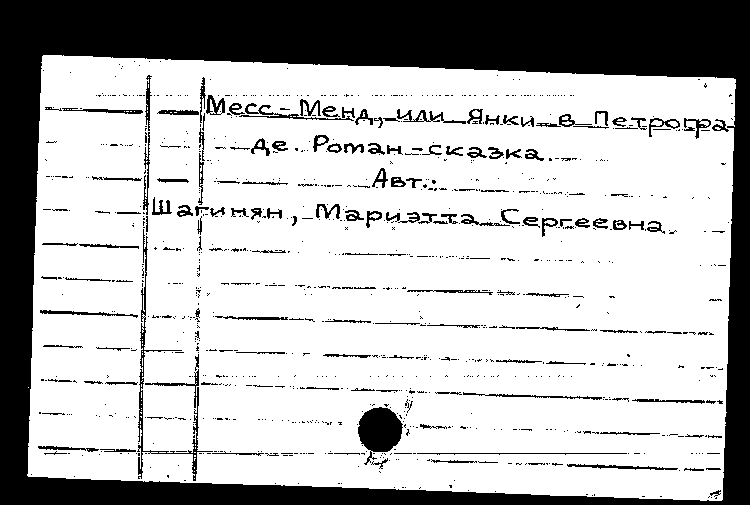 Месс-Менд, или Янки в Петрогра-
де. Роман-сказка.
Авт.:
Шагинян, Мариэтта Сергеевна.